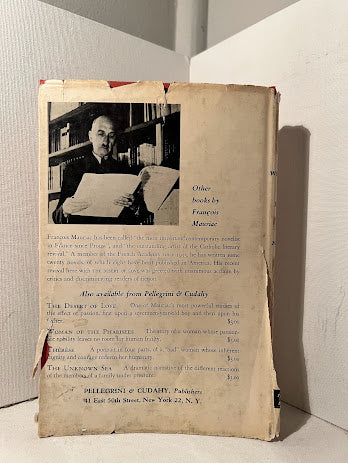 Other
books by
François
Mauriac
François Mauriac has been called "the most important contemporary novelist
in France since Proust", and "the outstanding artist of the Catholic literary
revival." A member of the French Academy he has written some
twenty novels of which eight have been published in America. His recent
was greeted with unanimous acclaim by
critics and discriminating readers of fiction.
Also available from Pellegrini & Cudahy
THE DESERT OF LOVE One of Mauriac's most powerful studies of
the effect of passion, first upon a seventeen-year-old boy and then upon his
father. $3.00
WOMAN OF THE PHARISEES The story of a woman whose passion-
ate nobility leaves no room for human frailty. $3.00
THÉRÈSE A portrait in four parts of a "bad" woman whose inherent
dignity and courage inform her humanity. $3.00
THE UNKNOWN SEA A dramatic narrative of the different reactions
of the members of a family under pressure. $3.00
PELLEGRINI & CUDAHY, Publishers
41 East 50th Street, New York 22, N. Y.